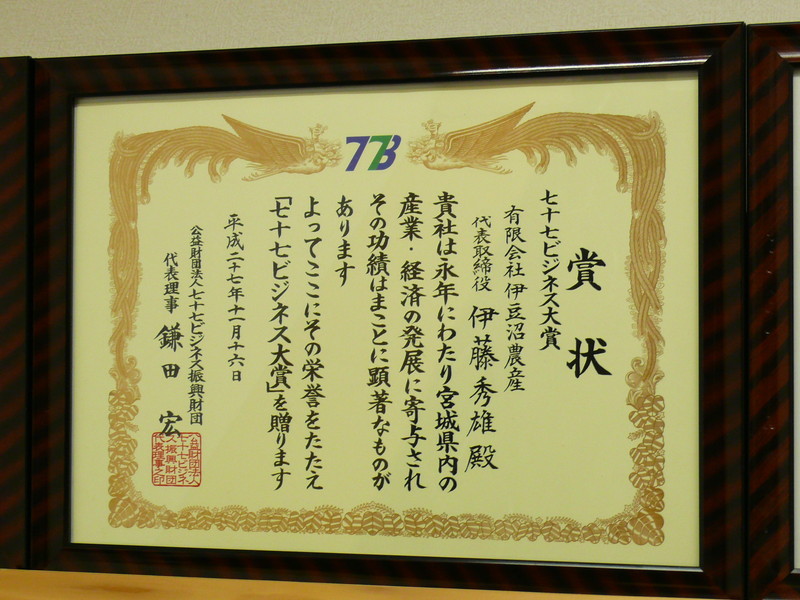 77B
賞状
七十七ビジネス大賞
有限会社 伊豆沼農産
代表取締役 伊藤秀雄 殿
貴社は永年にわたり宮城県内の
産業・経済の発展に寄与され
その功績はまことに顕著なものが
あります
よってここにその栄誉をたたえ
「七十七ビジネス大賞」を贈ります
平成二十七年十一月十六日
公益財団法人七十七ビジネス振興財団
代表理事 鎌田 宏
公益財団法人
七十七ビジネ
ス振興財団
代表理事之印